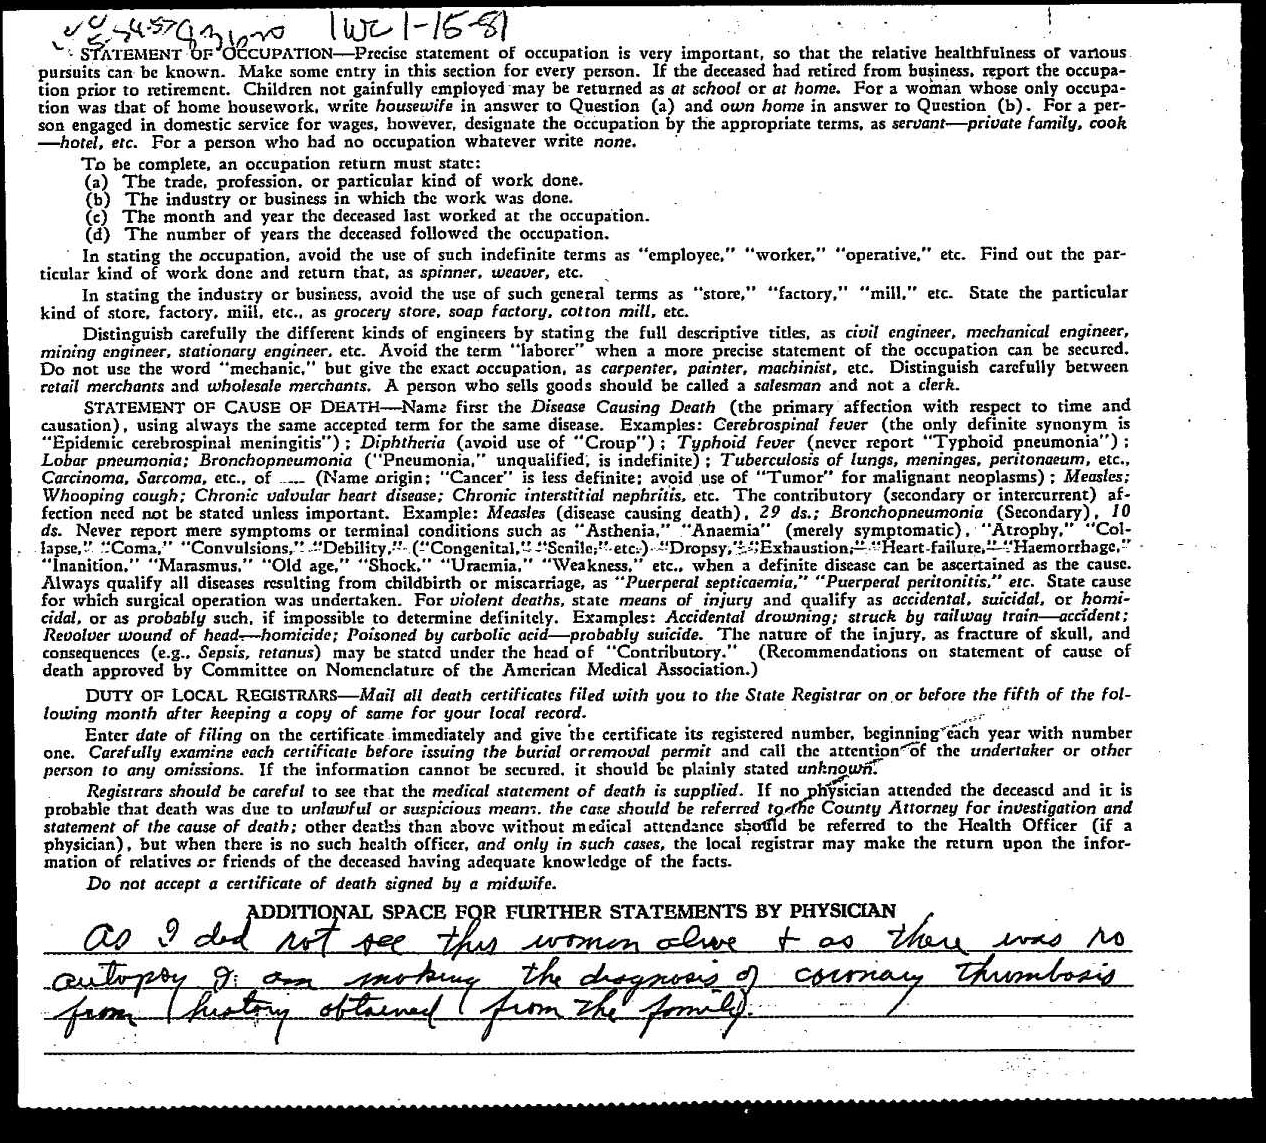 WC 1-15-81
STATEMENT OF OCCUPATION—Precise statement of occupation is very important, so that the relative healthfulness of various
pursuits can be known. Make some entry in this section for every person. If the deceased had retired from business, report the occupa-
tion prior to retirement. Children not gainfully employed may be returned as at school or at home. For a woman whose only occupa-
tion was that of home housework, write housewife in answer to Question (a) and own home in answer to Question (b). For a per-
son engaged in domestic service for wages, however, designate the occupation by the appropriate terms, as servant—private family, cook
—hotel, etc. For a person who had no occupation whatever write none.
To be complete, an occupation return must state:
(a) The trade, profession, or particular kind of work done.
(b) The industry or business in which the work was done.
(c) The month and year the deceased last worked at the occupation.
(d) The number of years the deceased followed the occupation.
In stating the occupation, avoid the use of such indefinite terms as "employee," "worker," "operative," etc. Find out the par-
ticular kind of work done and return that, as spinner, weaver, etc.
In stating the industry or business, avoid the use of such general terms as "store," "factory," "mill," etc. State the particular
kind of store, factory, mill, etc., as grocery store, soap factory, cotton mill, etc.
Distinguish carefully the different kinds of engineers by stating the full descriptive titles, as civil engineer, mechanical engineer,
mining engineer, stationary engineer, etc. Avoid the term "laborer" when a more precise statement of the occupation can be secured.
Do not use the word "mechanic," but give the exact occupation, as carpenter, painter, machinist, etc. Distinguish carefully between
retail merchants and wholesale merchants. A person who sells goods should be called a salesman and not a clerk.
STATEMENT OF CAUSE OF DEATH—Name first the Disease Causing Death (the primary affection with respect to time and
causation), using always the same accepted term for the same disease. Examples: Cerebrospinal fever (the only definite synonym is
"Epidemic cerebrospinal meningitis"); Diphtheria (avoid use of "Croup"); Typhoid fever (never report "Typhoid pneumonia");
Lobar pneumonia; Bronchopneumonia ("Pneumonia," unqualified, is indefinite); Tuberculosis of lungs, meninges, peritonaeum, etc.,
Carcinoma, Sarcoma, etc., of ...... (Name origin; "Cancer" is less definite; avoid use of "Tumor" for malignant neoplasms); Measles;
Whooping cough; Chronic valvular heart disease; Chronic interstitial nephritis, etc. The contributory (secondary or intercurrent) af-
fection need not be stated unless important. Example: Measles (disease causing death), 29 ds.; Bronchopneumonia (Secondary), 10
ds. Never report mere symptoms or terminal conditions such as "Asthenia," "Anaemia" (merely symptomatic), "Atrophy," "Col-
lapse," "Coma," "Convulsions," "Debility," ("Congenital," "Senile," etc.) "Dropsy," "Exhaustion," "Heart failure," "Haemorrhage,"
"Inanition," "Marasmus," "Old age," "Shock," "Uraemia," "Weakness," etc., when a definite disease can be ascertained as the cause.
Always qualify all diseases resulting from childbirth or miscarriage, as "Puerperal septicaemia," "Puerperal peritonitis," etc. State cause
for which surgical operation was undertaken. For violent deaths, state means of injury and qualify as accidental, suicidal, or homi-
cidal, or as probably such, if impossible to determine definitely. Examples: Accidental drowning; struck by railway train—accident;
Revolver wound of head—homicide; Poisoned by carbolic acid—probably suicide. The nature of the injury, as fracture of skull, and
consequences (e.g., Sepsis, tetanus) may be stated under the head of "Contributory." (Recommendations on statement of cause of
death approved by Committee on Nomenclature of the American Medical Association.)
DUTY OF LOCAL REGISTRARS—Mail all death certificates filed with you to the State Registrar on or before the fifth of the fol-
lowing month after keeping a copy of same for your local record.
Enter date of filing on the certificate immediately and give the certificate its registered number, beginning each year with number
one. Carefully examine each certificate before issuing the burial or removal permit and call the attention of the undertaker or other
person to any omissions. If the information cannot be secured, it should be plainly stated unknown.
Registrars should be careful to see that the medical statement of death is supplied. If no physician attended the deceased and it is
probable that death was due to unlawful or suspicious means, the case should be referred to the County Attorney for investigation and
statement of the cause of death; other deaths than above without medical attendance should be referred to the Health Officer (if a
physician), but when there is no such health officer, and only in such cases, the local registrar may make the return upon the infor-
mation of relatives or friends of the deceased having adequate knowledge of the facts.
Do not accept a certificate of death signed by a midwife.
ADDITIONAL SPACE FOR FURTHER STATEMENTS BY PHYSICIAN
As I did not see this woman alive + as there was no
autopsy I am making the diagnosis of coronary thrombosis
from history obtained from the family.